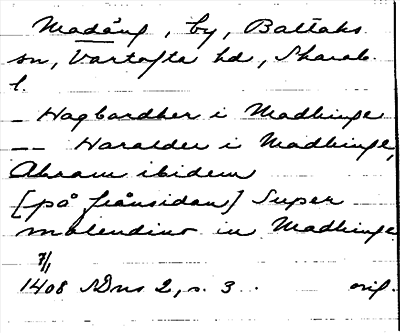 Madäng, by, Baltaks
sn, Vartofta hd, Skarab.
l.
_ Hagbardher i Madhinge
__ Haralder i Madhinge,
Abraam ibidem
[på frånsidan] Super
molendino in Madhinge
7/1
1408 SDns 2, s. 3 .. orig.